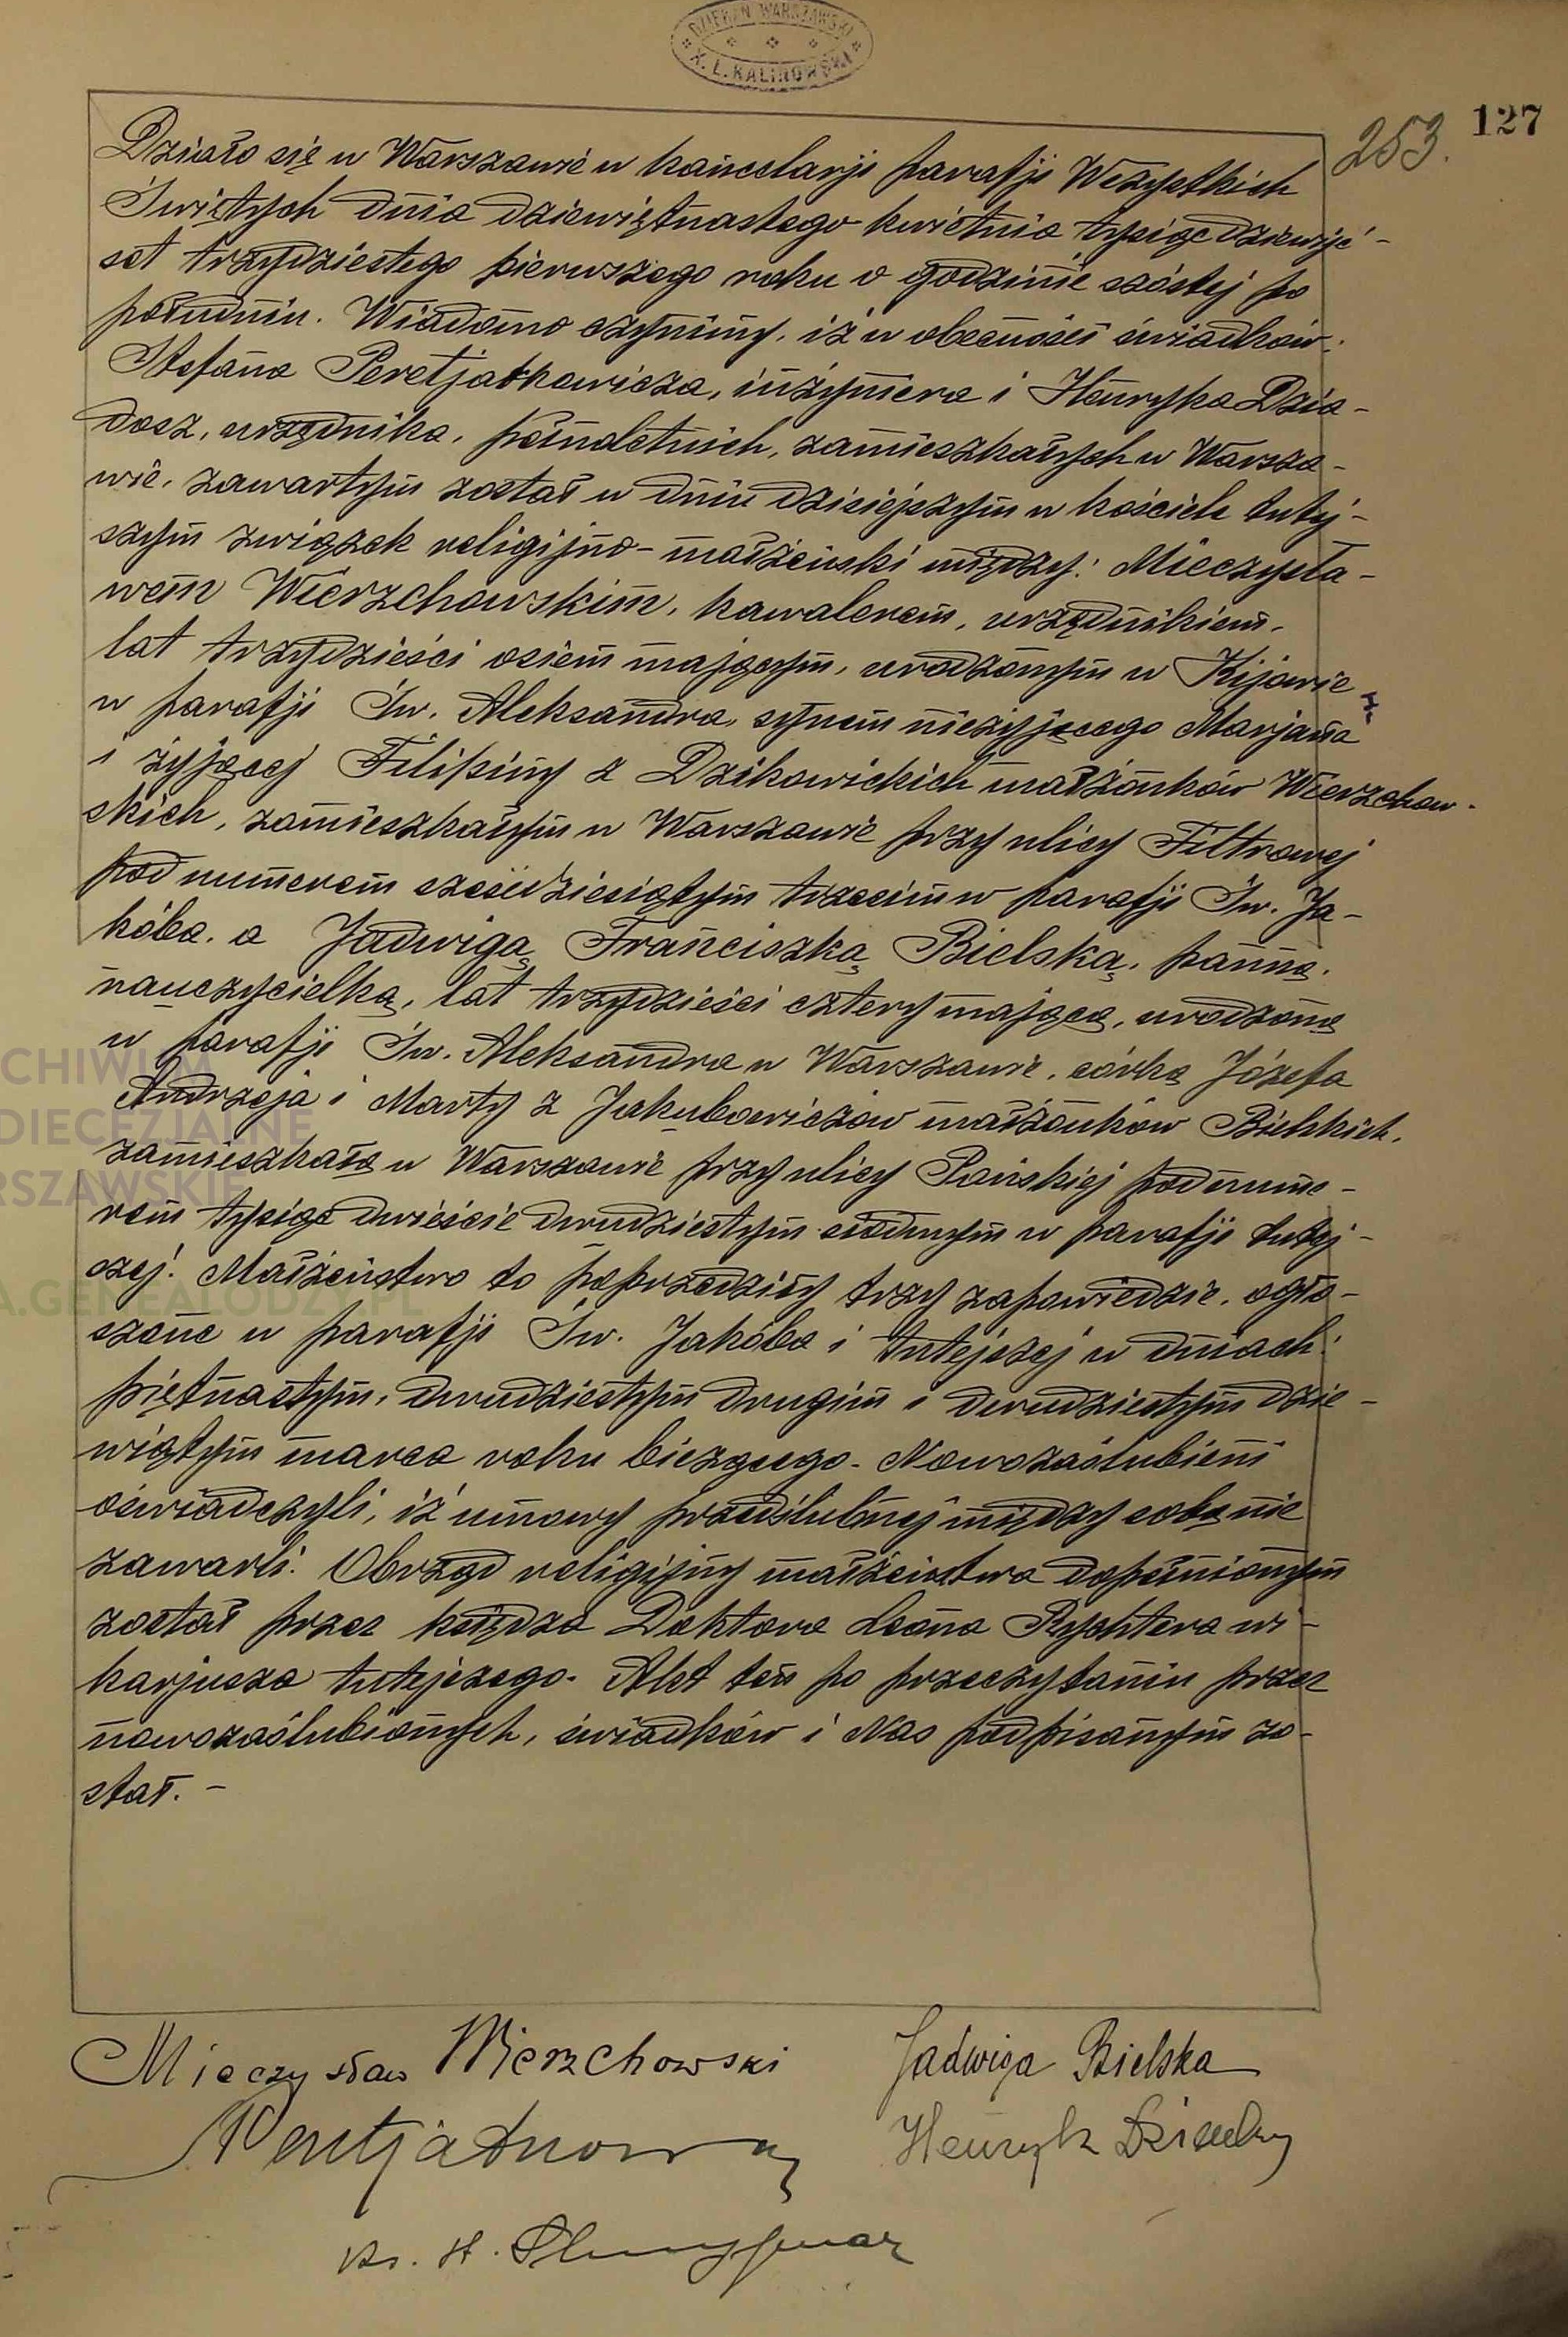 DZIEKAN WARSZAWSKI
X. L. KALINOWSKI
127
253.
Działo się w Warszawie w kancelarji parafji Wszystkich
Świętych dnia dziewiętnastego kwietnia tysiąc dziewięć-
set trzydziestego pierwszego roku o godzinie szóstej po
południu. Wiadomo czynimy, iż w obecności świadków:
Stefana Peretjatkowicza, inżyniera i Henryka Dzia-
dosz, urzędnika, pełnoletnich, zamieszkałych w Warsza-
wie, zawartym został w dniu dzisiejszym w kościele tutej-
szym związek religijno-małżeński między: Mieczysła-
wem Wierzchowskim, kawalerem, urzędnikiem,
lat trzydzieści osiem mającym, urodzonym w Kijowie
w parafji Św. Aleksandra, synem nieżyjącego Marjana
i żyjącej Filipiny z Dzikowickich małżonków Wierzchow-
skich, zamieszkałym w Warszawie przy ulicy Filtrowej
pod numerem sześćdziesiątym trzecim w parafji Św. Ja-
kóba, a Jadwigą Franciszką Bielską, panną,
nauczycielką, lat trzydzieści cztery mającą, urodzoną
w parafji Św. Aleksandra w Warszawie, córką Józefa
Andrzeja i Marty z Jakubowiczów małżonków Bielskich,
zamieszkałą w Warszawie przy ulicy Pańskiej pod nume-
rem tysiąc dwieście dwudziestym siódmym w parafji tutej-
szej. Małżeństwo to poprzedziły trzy zapowiedzie, ogło-
szone w parafji Św. Jakóba i tutejszej w dniach:
piętnastym, dwudziestym drugim i dwudziestym dzie-
wiątym marca roku bieżącego. Nowozaślubieni
oświadczyli, iż umowy przedślubnej między sobą nie
zawarli. Obrząd religijny małżeństwa dopełnionym
został przez księdza Doktora Leona Rychtera wi-
karjusza tutejszego. Akt ten po przeczytaniu przez
nowozaślubionych, świadków i Nas podpisanym zo-
stał. -
Mieczysław Wierzchowski Jadwiga Bielska
Henryk
Ks. H.
ARCHIWUM
DIECEZJALNE
WARSZAWSKIE
A.GENEALODZY.PL